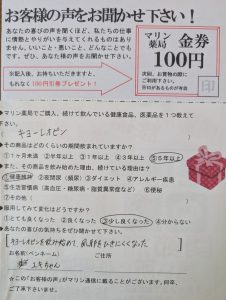 お客様の声をお聞かせ下さい！
あなたの喜びの声を聞くほど、私たちの仕事
に情熱とやりがいを与えてくれるものはあり
ません。いいこと・悪いこと、どんなことでも
です。ぜひ、あなた様の声をお聞かせ下さい。
※記入後、お持ちいただきますと、
もれなく100円引券プレゼント！
マリン薬局
金券
100円
次回、お買物の際に
ご利用できます。
印
●マリン薬局でご購入、続けて飲んでいる健康食品、医薬品を1つ教えて
下さい。
キヨーレオピン
●その商品はどのくらいの期間飲まれていますか？
①1ヶ月未満 ②半年以上 ③1年以上 ④3年以上 ⑤5年以上
●また、その商品を飲み始めた理由、続けている理由は？
①健康維持 ②夜間尿（頻尿） ③ダイエット ④アレルギー疾患
⑤生活習慣病（高血圧・糖尿病・脂質異常症など） ⑥便秘
⑦その他（ ）
●服用してみて変化はどうですか？
①とても良くなった ②良くなった ③少し良くなった ④分からない
●あなたの喜びの気持ちをぜひご感想下さい。
キヨーレオピンを飲み始めて、風邪をひきにくくなった
お名前（ペンネーム） ご住所
ユキちゃん
☆この「お客様の声」がマリン通信に載ることがございます。何卒、
ご了承下さいませ。